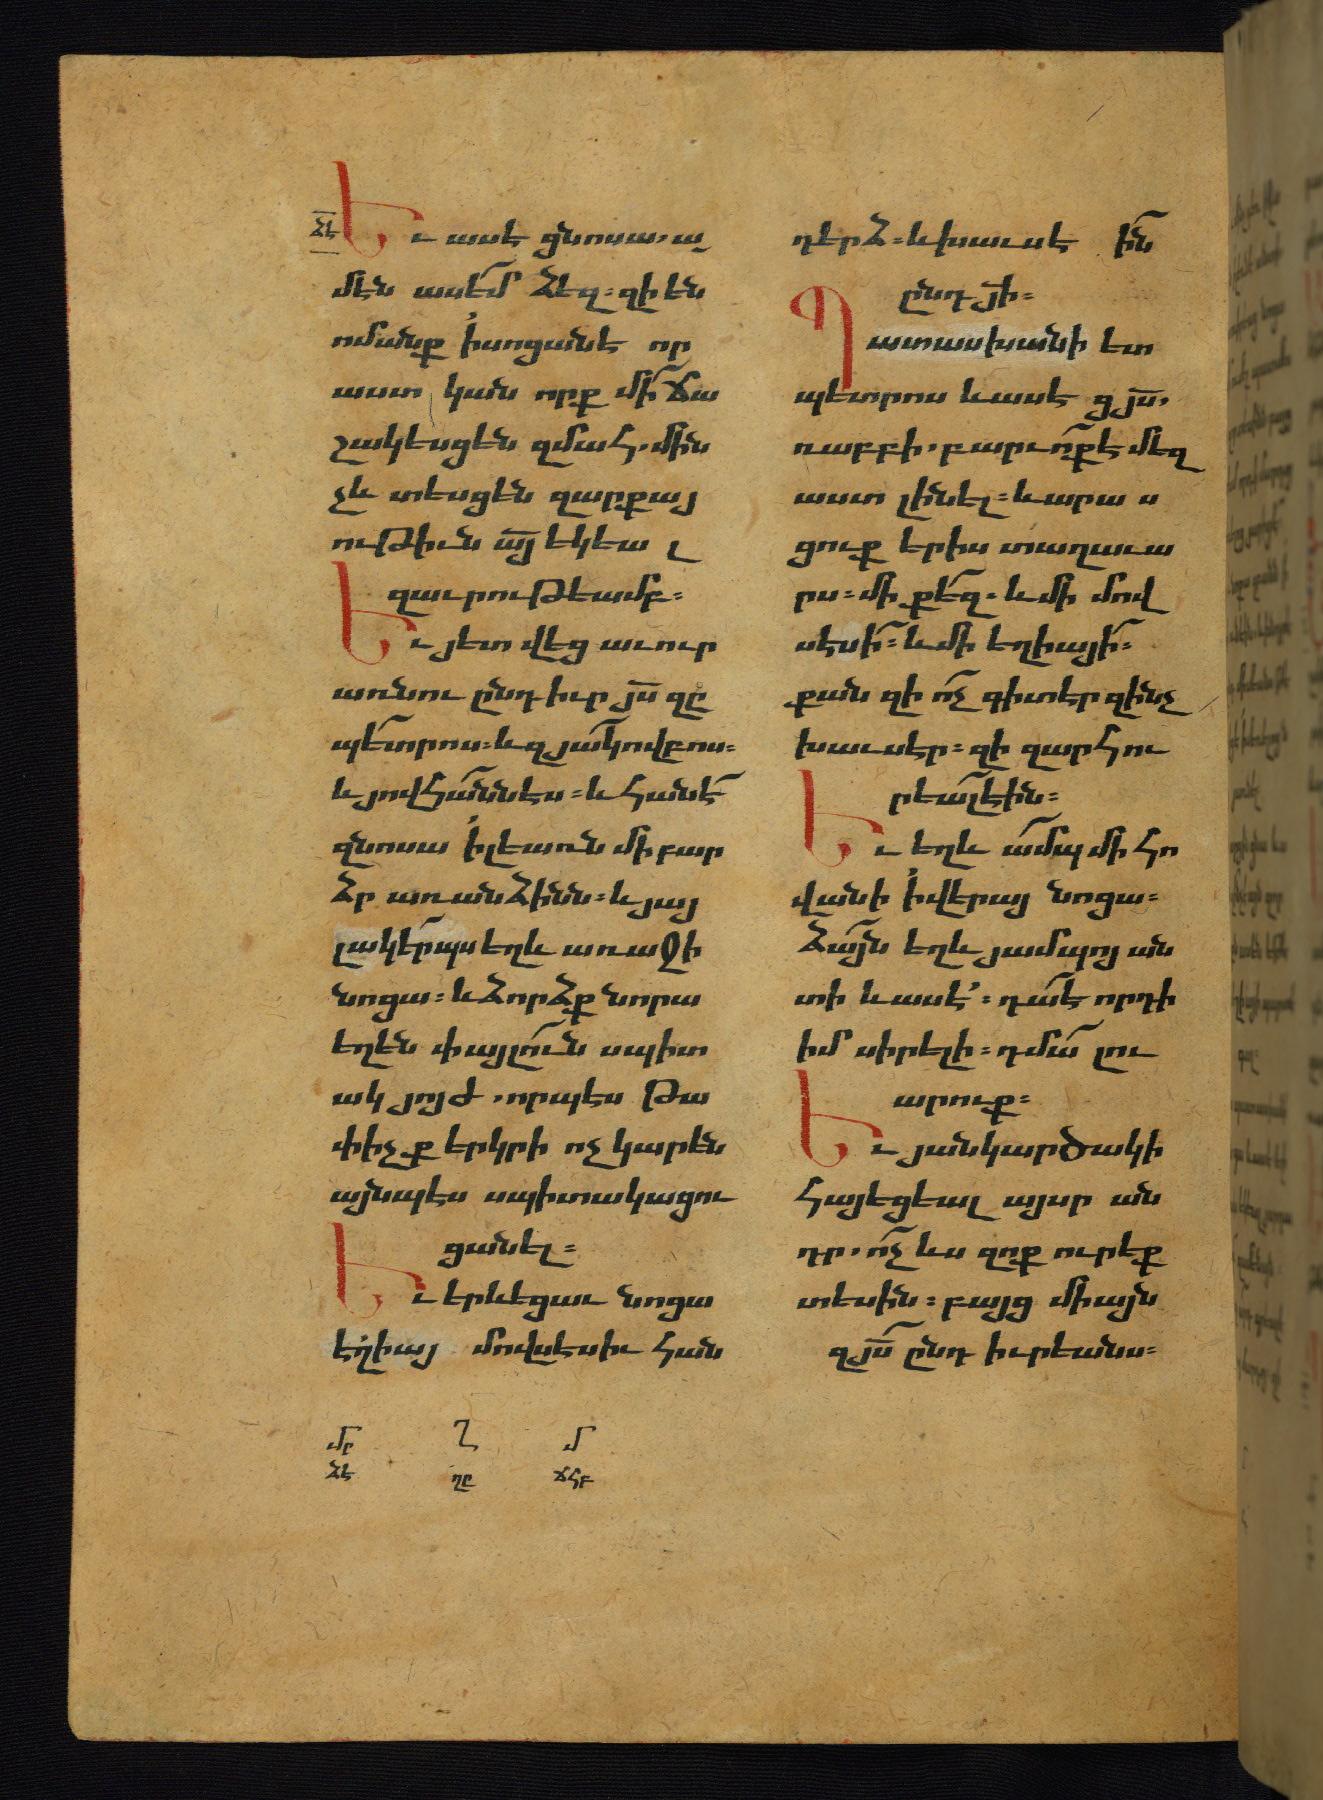 ՁԷ
Եւ ասէ ցնոսա, ա
մէն ասեմ ձեզ. զի են
ոմանք ի սոցանէ որ
աստ կան որք մի՛ ճա
շակեսցեն զմահ. մինչ
չև տեսցեն զարքայ
ութիւն ա՟յ եկեալ
զաւրութեամբ։
Եւ յետ վեց աւուր
առնու ընդ իւր յ՟ս զը
պետրոս. և զյակովբոս.
և յովհաննէս. և հանէ
զնոսա ի լեառն մի բար
ձր առանձինն. և յայ
լակերպս եղև առաջի
նոցա. և ձորձք նորա
եղեն փայլուն սպիտ
ակ յոյժ, որպէս թա
փիչք երկրի ոչ կարեն
այնպէս սպիտակացու
ցանել։
Եւ երևեցաւ նոցա
եղիայ մովսեսիւ հան
դերձ. և խաւսէ ին
ընդ յ՟ի։
Պատասխանի ետ
պետրոս և ասէ ց յ՟ս,
ռաբբի, բարւոք է մեզ
աստ լինել. և արաս
ցուք երիս տաղաւա
րս. մի քեզ. և մի մով
սեսի. և մի եղիայի.
քանզի ոչ գիտէր զինչ
խաւսէր. զի զարհու
րեալ էին։
Եւ եղև ամպ մի հո
վանի ի վերայ նոցա.
ձայն եղև յամպոյ ան
տի և ասէ. դա է որդի
իմ սիրելի. դմա լու
արուք։
Եւ յանկարծակի
հայեցեալ այսր ան
դր, ոչ ևս զոք ուրեք
տեսին. բայց միայն
զյ՟ս ընդ իւրեանս։
մր Ղ մ
ՁԷ ՂԸ ՃՀԲ